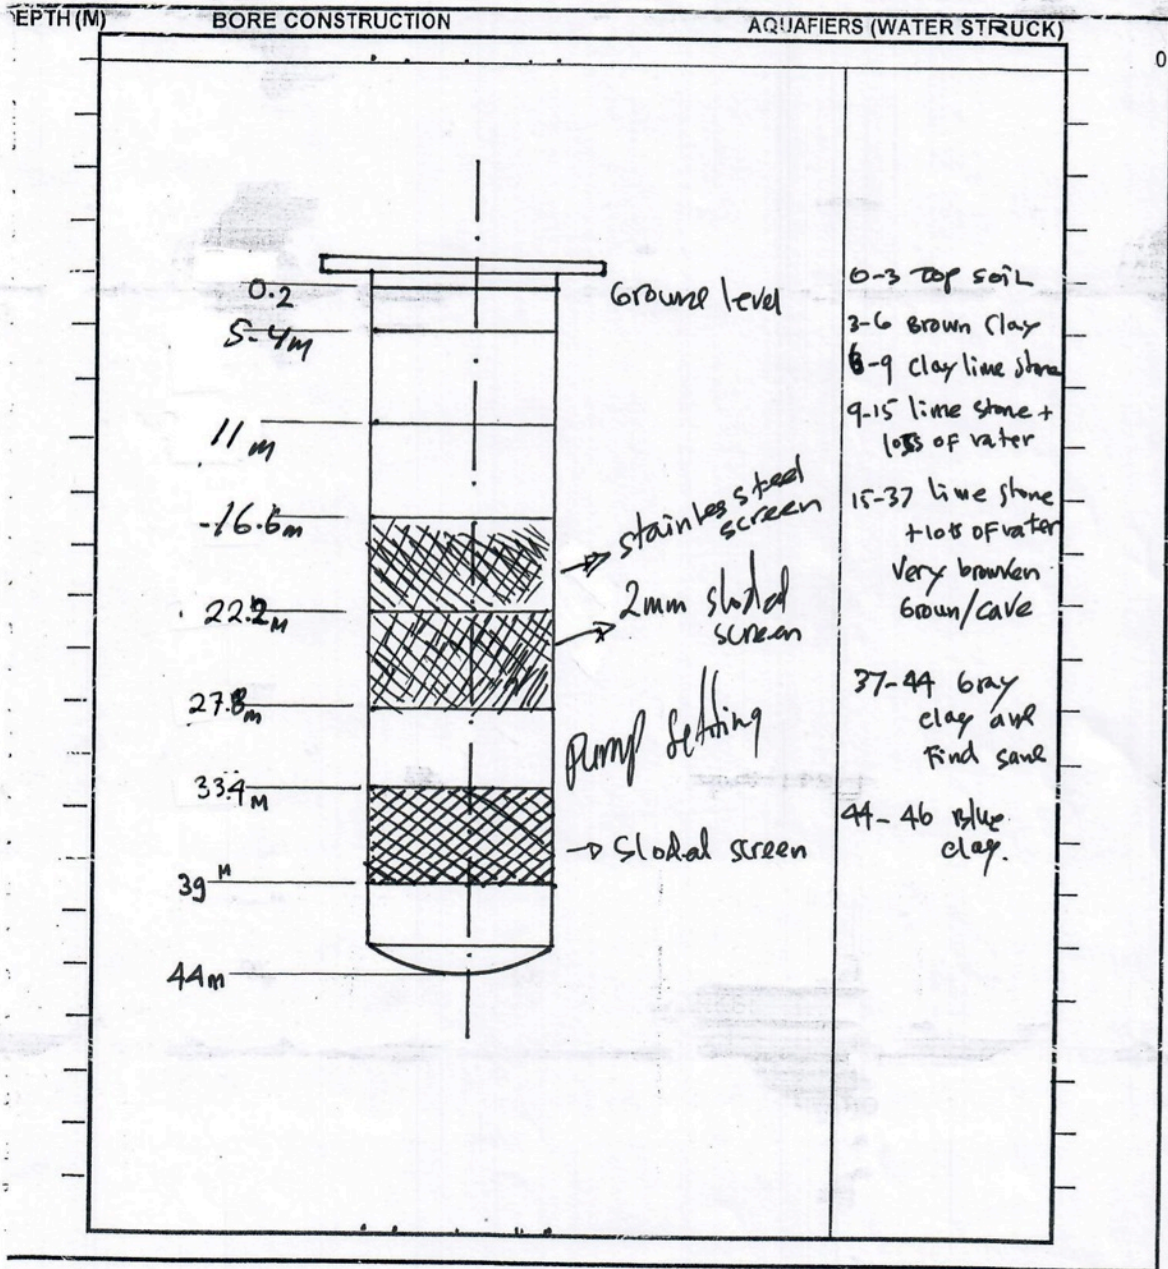 EPTH (M) BORE CONSTRUCTION AQUAFIERS (WATER STRUCK)
0
0.2
5.4m
11 m
-16.6m
22.2M
27.8m
33.4 M
39 M
44m
Ground level
stainless steel
screen
2mm sloded
screen
pump setting
Sloded screen
0-3 Top soil
3-6 Brown Clay
6-9 Clay lime stone
9-15 lime stone +
loss of water
15-37 lime stone
+ loss of water
Very browken
Groun/cave
37-44 Gray
clay and
Find sand
44-46 Blue
clay.